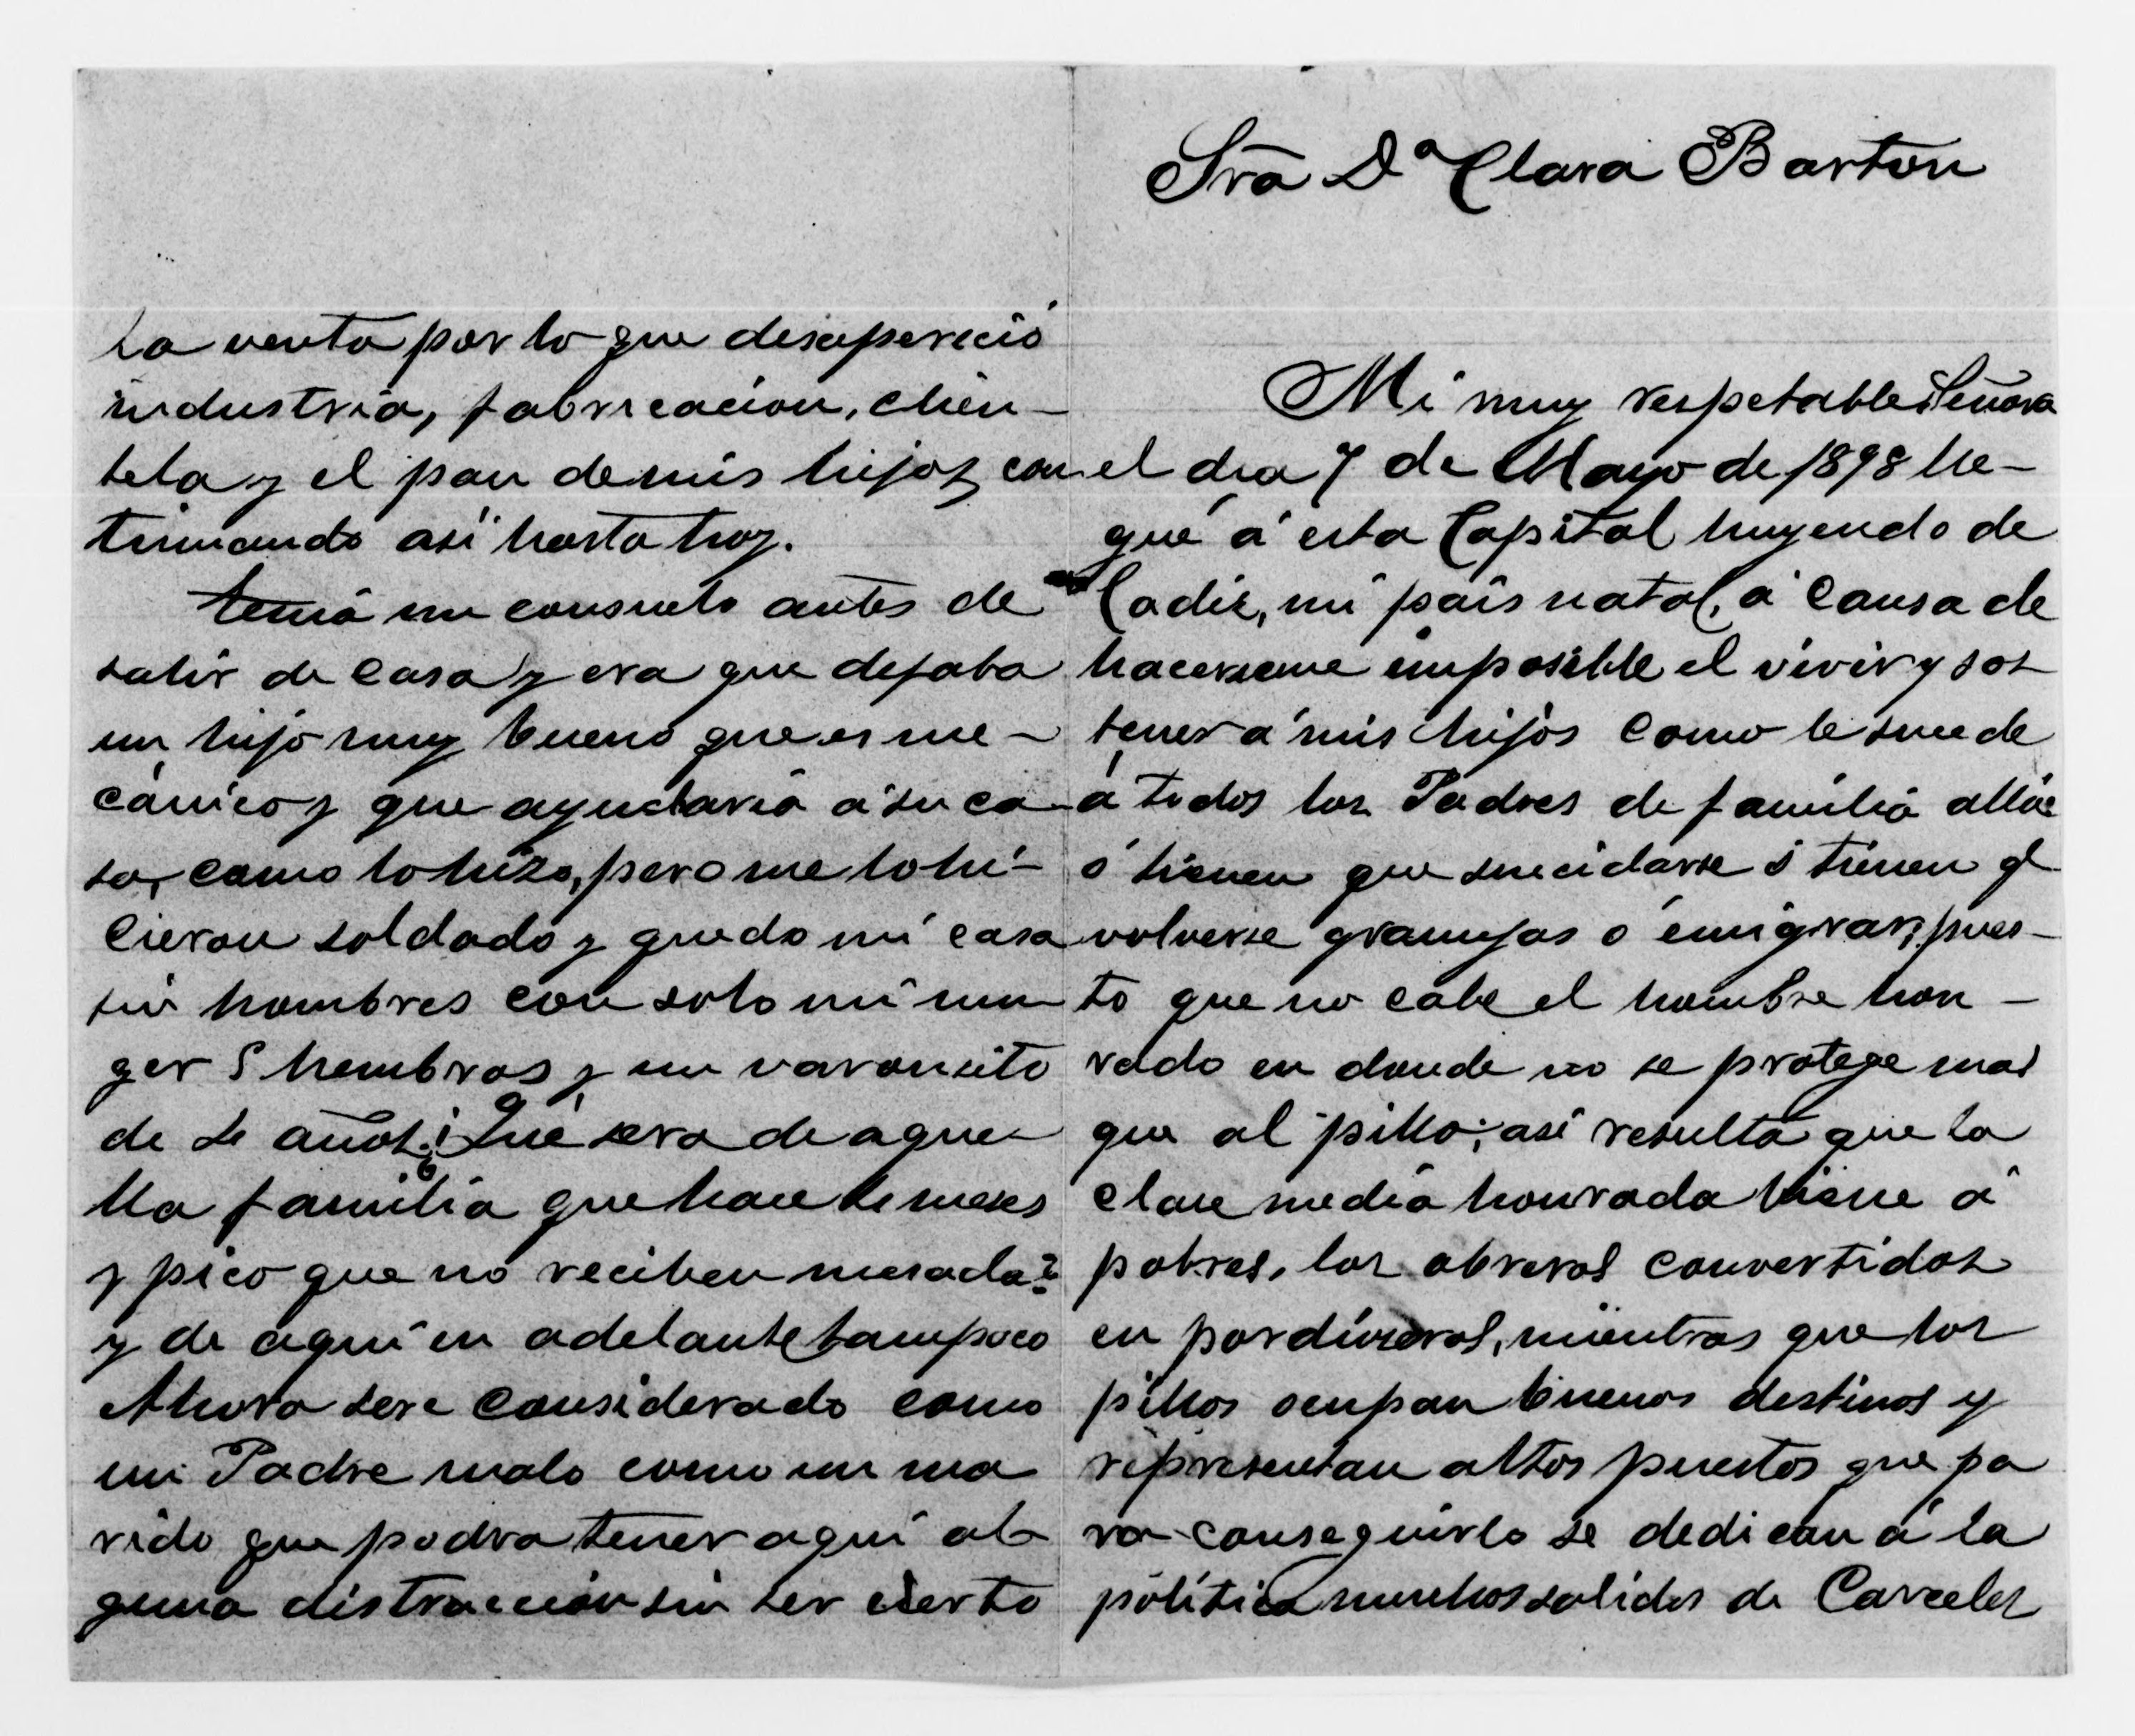 la venta por lo que desapereció
industria, fabricacion, clien-
tela y el pan de mis hijos con
tinuando asi hasta hoy.
tenia un consuelo antes de
salir de casa y era que dejaba
un hijo muy bueno que es me-
cánico y que ayudaria á su ca
sa, como lo hizo, pero me lo hi-
cieron soldado y quedo mi casa
sin hombres con solo mi mu
ger 5 hembras y un varoncito
de 2 años. ¡Qué sera de aque-
lla familia que hace 6 meses
y pico que no reciben mesada?
y de aqui en adelante tampoco
Ahora sere considerado como
un Padre malo como un ma
rido que podra tener aqui al-
guna distraccion sin ser cierto
Sra Dª Clara Barton
Mi muy respetable Señora
el dia 7 de Mayo de 1898 lle-
gué á esta Capital huyendo de
Cadiz, mi pais natal, á causa de
hacerseme imposible el vivir y sos
tener á mis hijos como le sucede
á todos los Padres de familia allá
ó tienen que suicidarse ó tienen q.
volverse granujas ó emigrar, pues-
to que no cabe el hombre hon-
rado en donde no se protege mas
que al pillo; asi resulta que la
clase media honrada viene á
pobres, los obreros convertidos
en pordioseros, mientras que los
pillos ocupan buenos destinos y
representan altos puestos que pa
ra conseguirlo se dedican á la
politica muchos salidos de Carceles